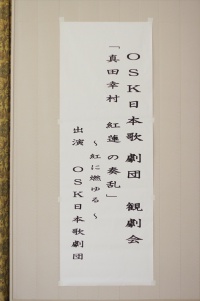 OSK日本歌劇団 観劇会
「真田幸村 紅蓮の奏乱」
～紅に燃ゆる～
出演 OSK日本歌劇団